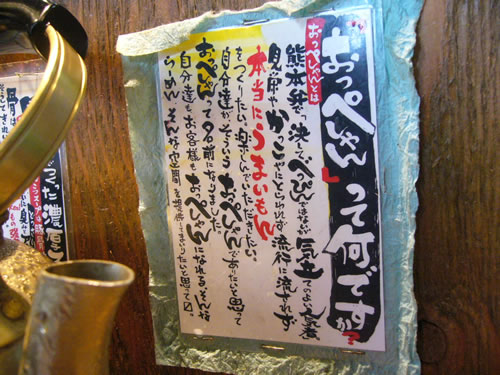 "おっぺしゃん"って何ですか?
おっぺしゃんとは
熊本弁で"決してべっぴんではないが気立てのよい女性
見栄やかっこにとらわれず流行に流されず
本当にうまいもん
をつくりたい。楽しんでいただきたい。
自分達がそういうおっぺしゃんでありたいと思って
おっぺしゃんて名前になりました。
自分達もお客様もおっぺしゃんになれるそんな
らーめん、そんな空間を提供していきたいと思って
つくった濃厚